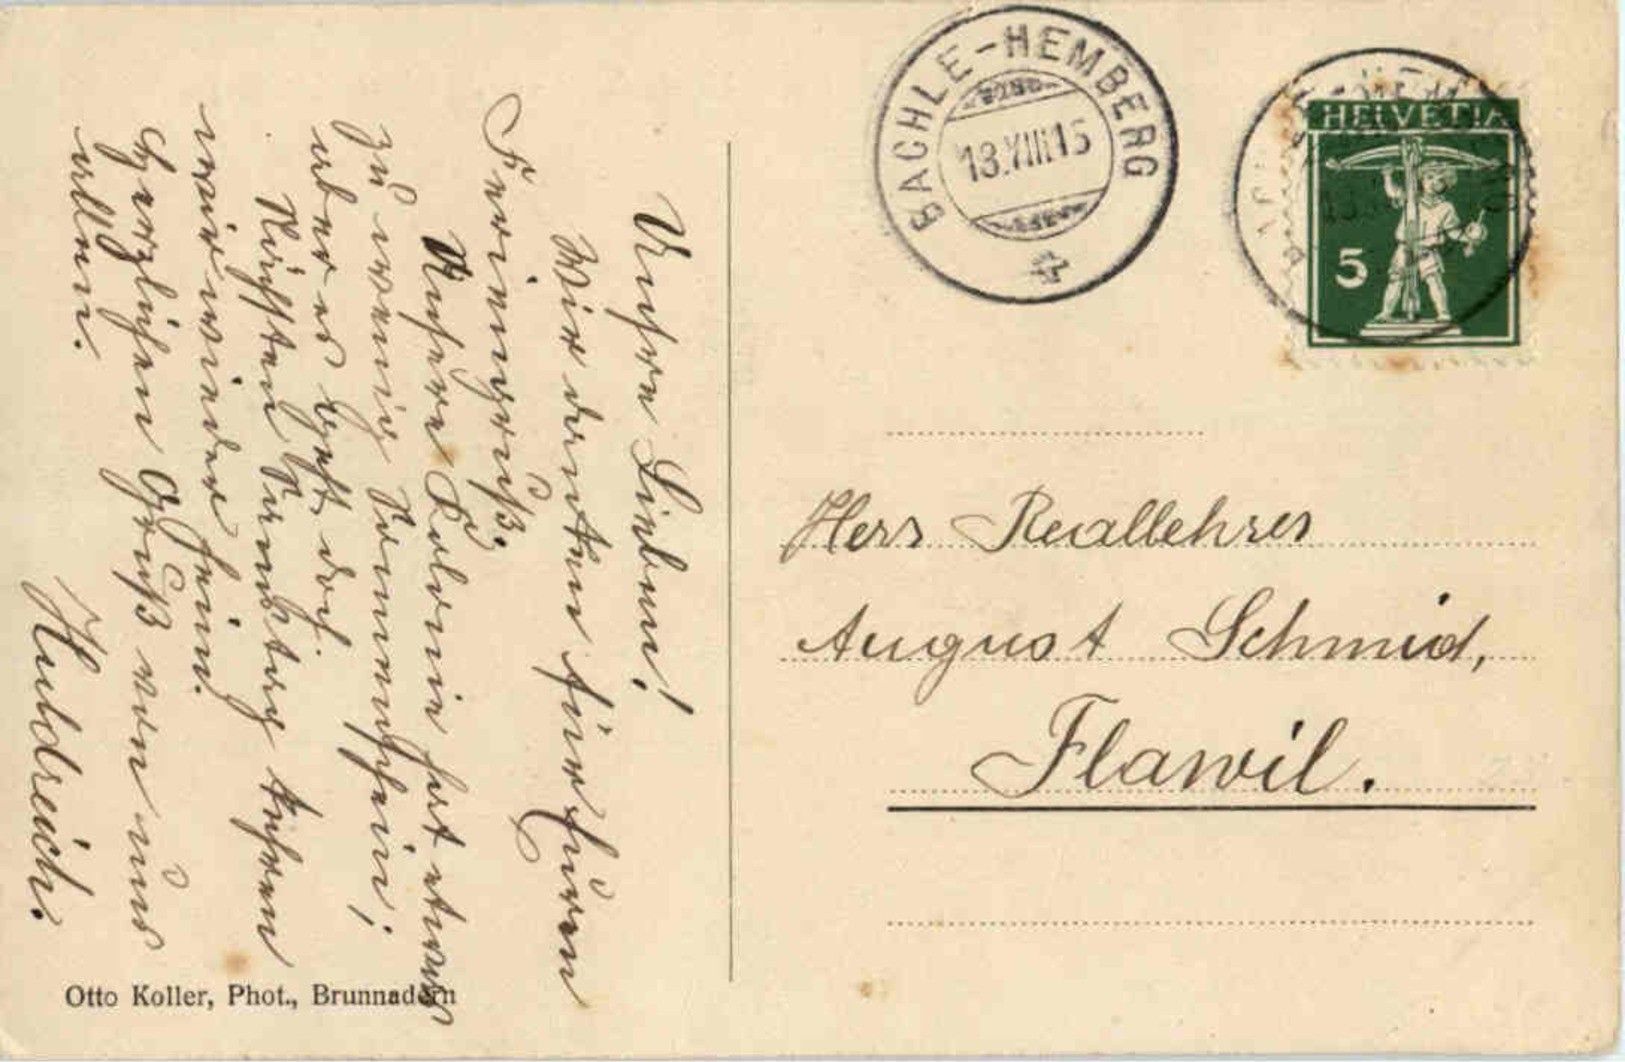 Unsre Lieben!
Wir danken für Euern
Feriengruß.
Unsere Kolonie hat etwas
zu wenig Sonnenschein;
aber es geht doch.
Nächsten Samstag kehren
wir wieder heim.
Herzlichen Gruß von uns
allen.
Huldreich.
Otto Koller, Phot., Brunnadern
BÄCHLE-HEMBERG
13.VIII.15
HELVETIA
5
Herr Reallehrer
August Schmid,
Flawil.